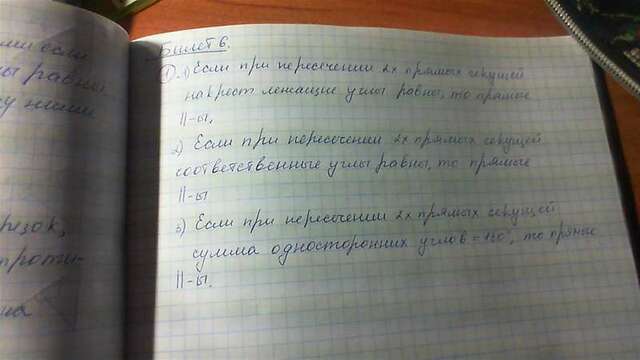 ми если
ы равны
Билет 6.
① 1) Если при пересечении 2х прямых секущей
накрест лежащие углы равны, то прямые
||-ы.
2) Если при пересечении 2х прямых секущей
соответственные углы равны, то прямые
||-ы
3) Если при пересечении 2х прямых секущей
сумма односторонних углов = 180°, то прямые
||-ы.
резок,
проти-